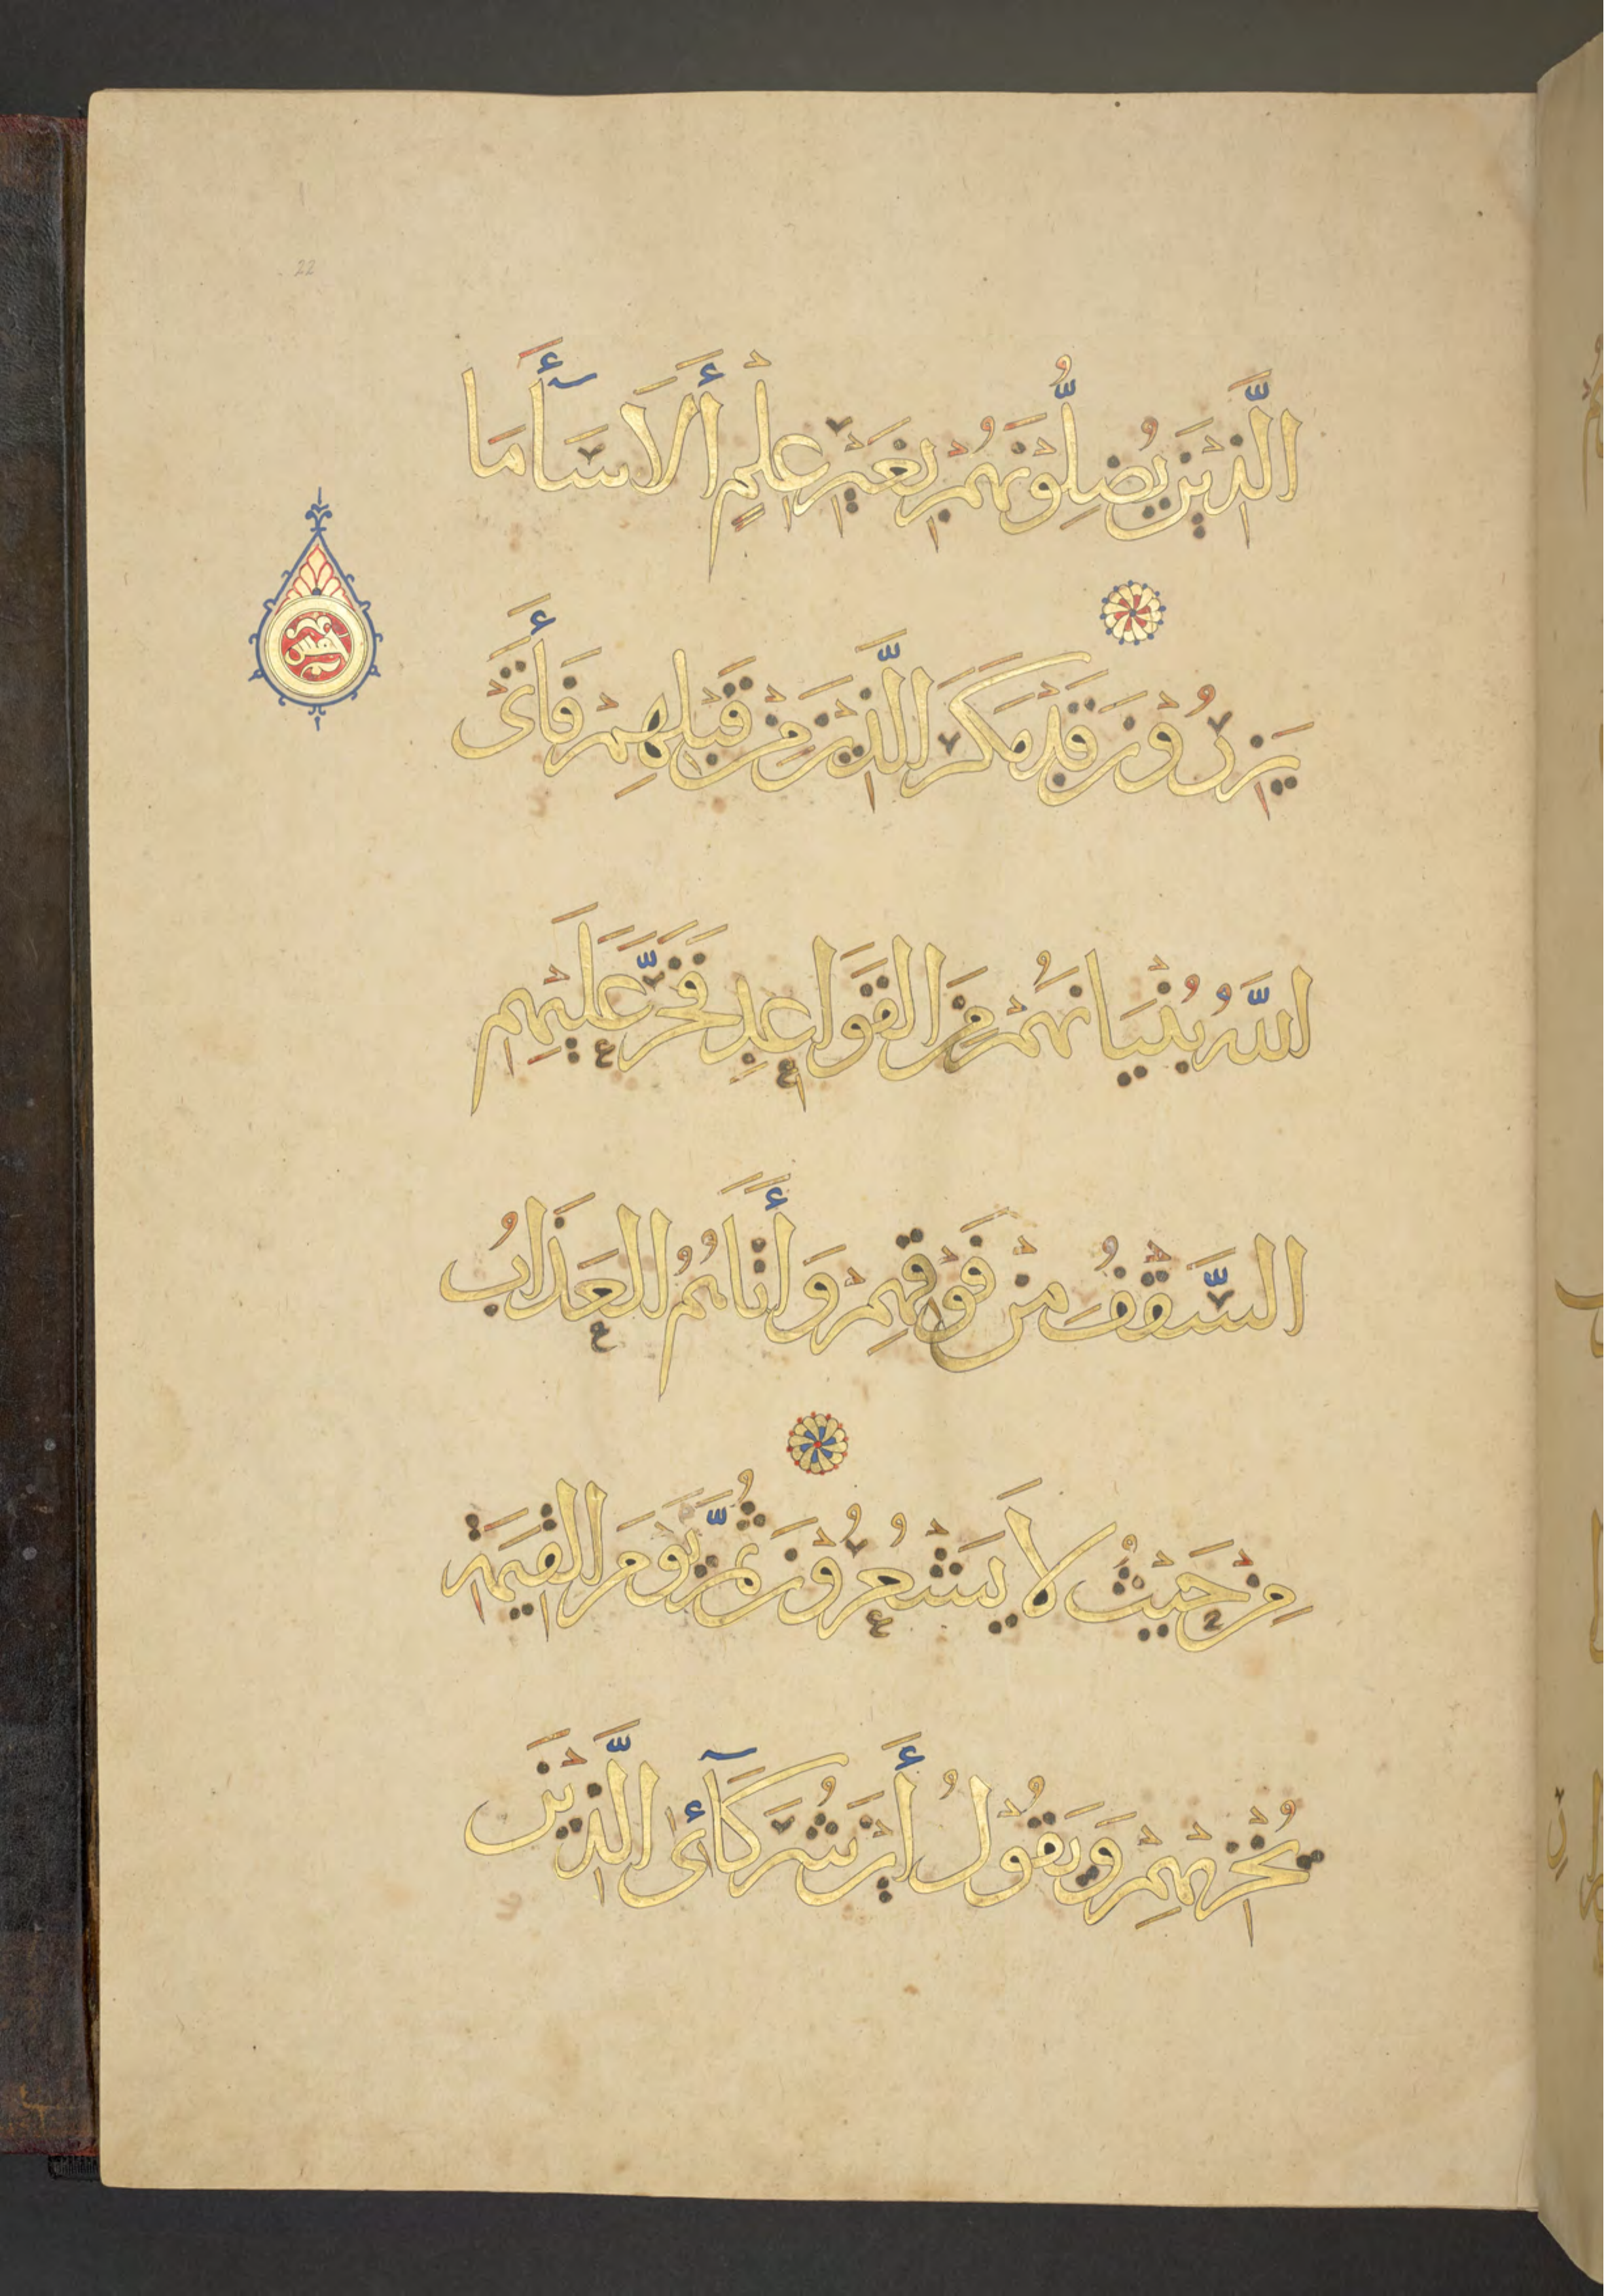 الَّذِيْنَ يُضِلُّوْنَهُمْ بِغَيْرِ عِلْمٍ أَلَا سَآأَ مَا
يَزِرُوْنَ قَدْ مَكَرَ الَّذِيْنَ مِنْ قَبْلِهِمْ فَأَتَى
اللَّهُ بُنْيَانَهُمْ مِنَ الْقَوَاعِدِ فَخَرَّ عَلَيْهِمُ
السَّقْفُ مِنْ فَوْقِهِمْ وَأَتَاهُمُ الْعَذَابُ
مِنْ حَيْثُ لَا يَشْعُرُوْنَ ثُمَّ يَوْمَ الْقِيَمَةِ
يُخْزِيْهِمْ وَيَقُوْلُ أَيْنَ شُرَكَآئِىَ الَّذِيْنَ
خمس
22